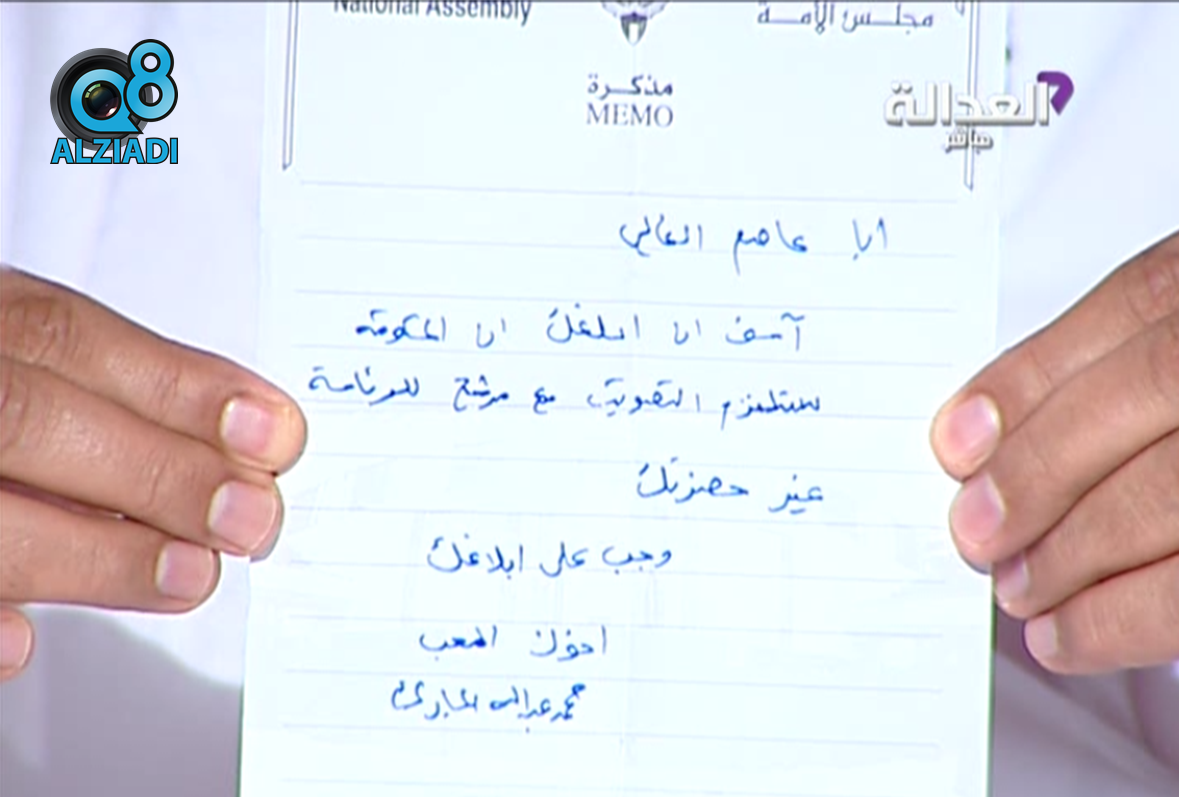 National Assembly
مجلس الأمة
مذكرة
MEMO
Q8
ALZIADI
العدالة
مباشر
ابا عاصم الغالي
آسف ان ابلغك ان الحكومة
ستلتزم التصويت مع مرشح للرئاسة
غير حضرتك
وجب علي ابلاغك
اخوك المحب
محمد عبدالله المبارك